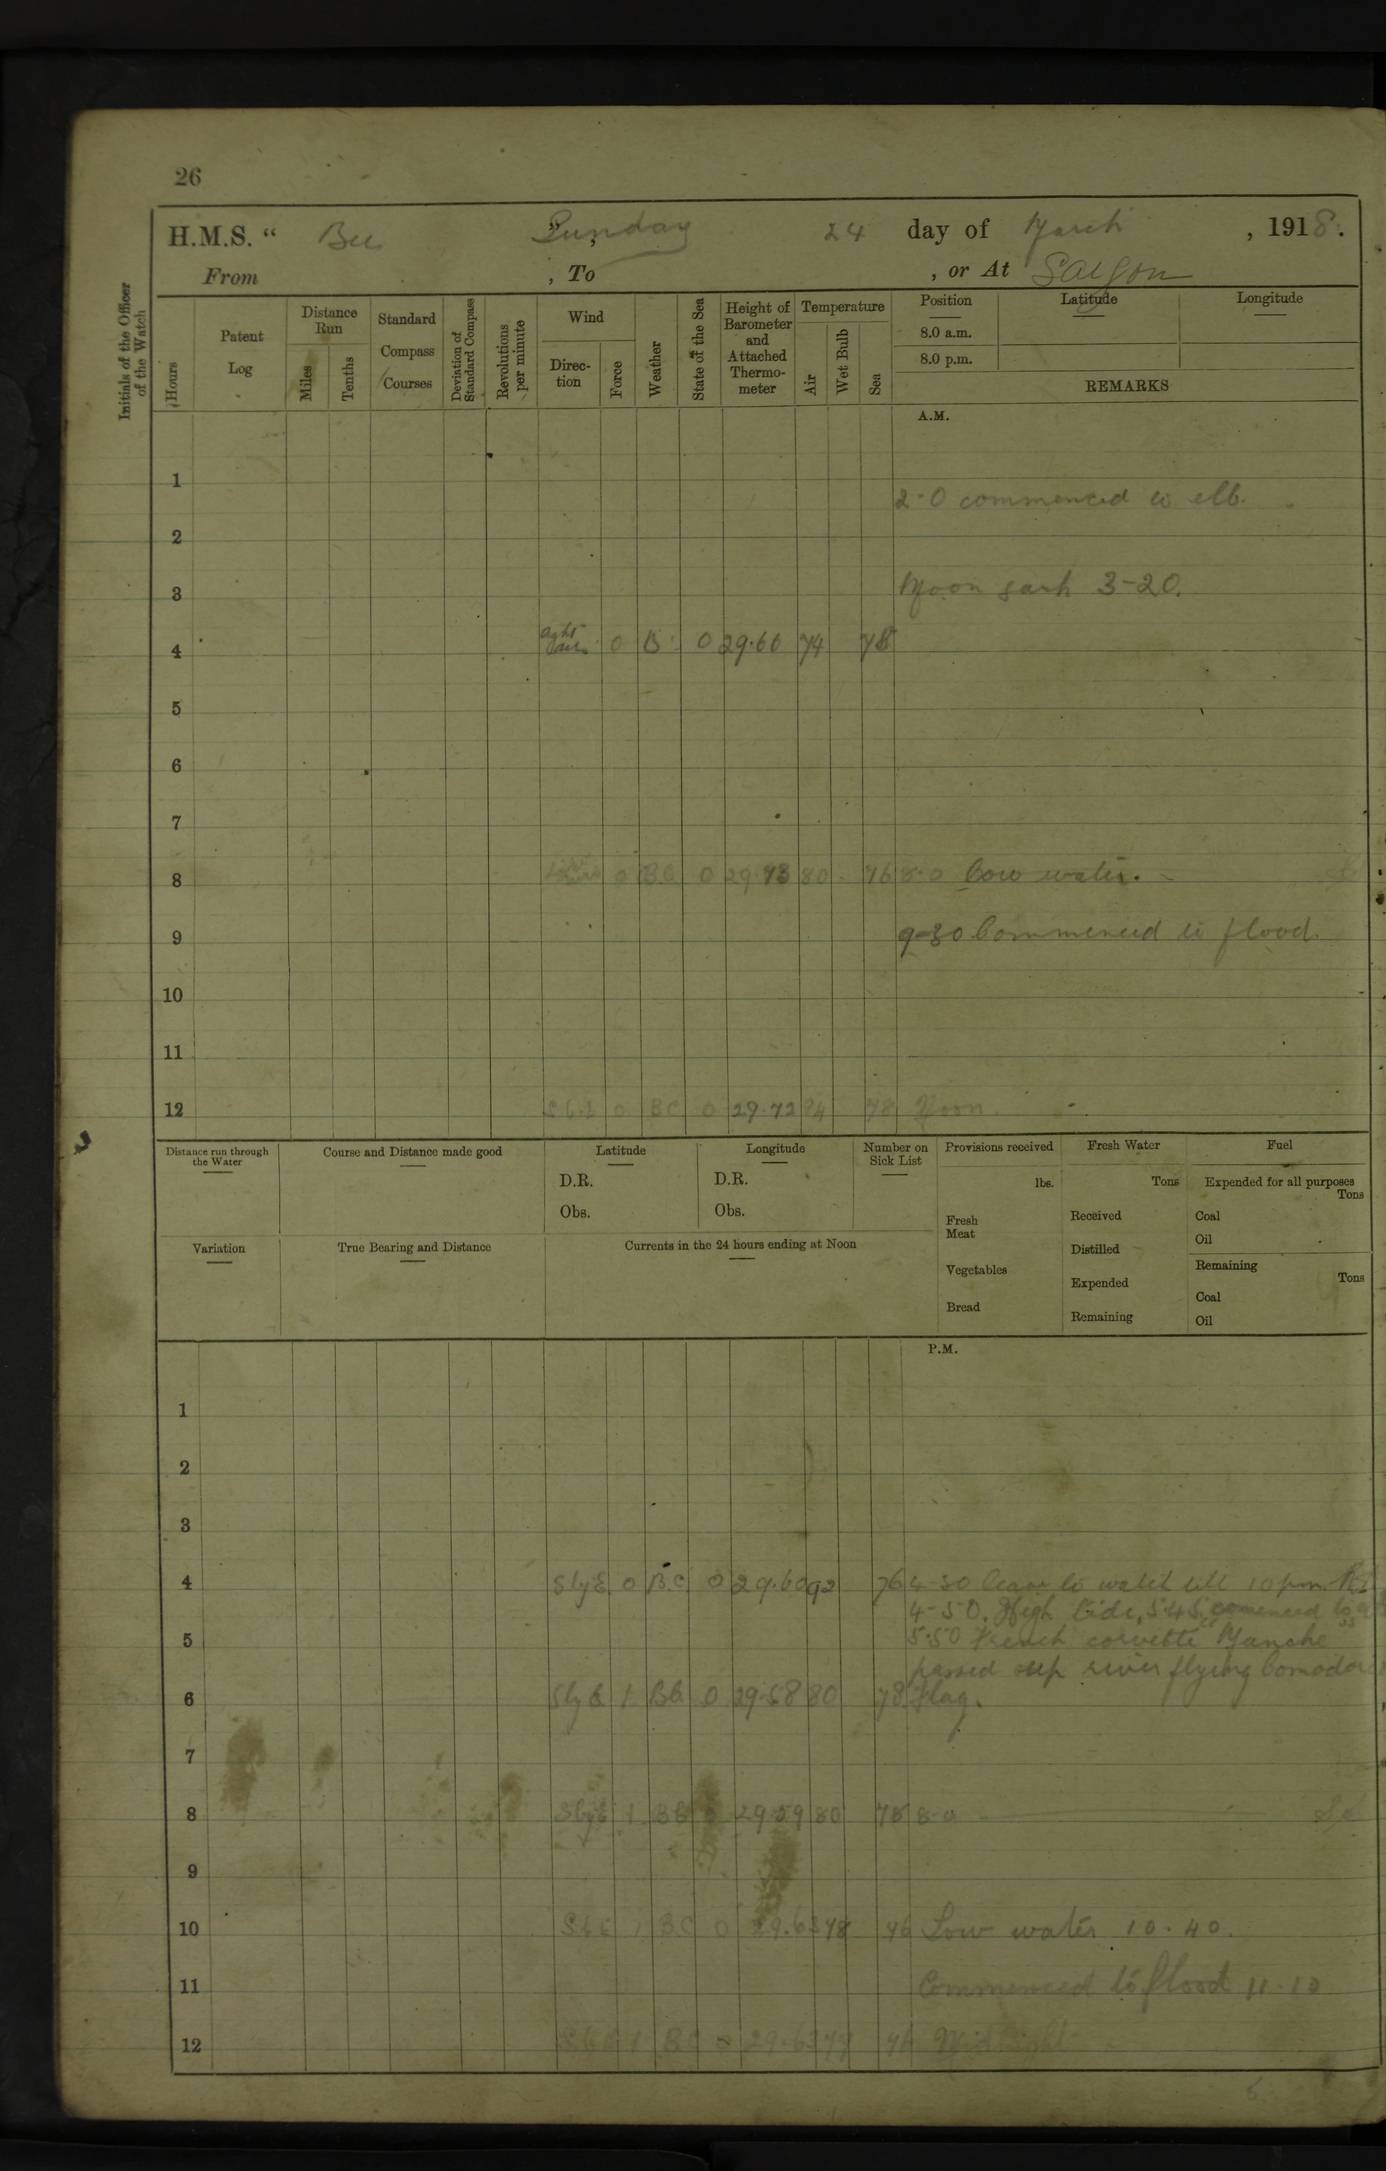 26
H.M.S. “ Bee ”, Sunday 24 day of March , 1918.
From , To , or At Saigon
Initials of the Officer of the Watch
Hours
Patent Log
Distance Run
Miles
Tenths
Standard Compass Courses
Deviation of Standard Compass
Revolutions per minute
Wind
Direction
Force
Weather
State of the Sea
Height of Barometer and Attached Thermometer
Temperature
Air
Wet Bulb
Sea
Position Latitude Longitude
8.0 a.m.
8.0 p.m.
REMARKS
A.M.
1
2-0 commenced to ebb.
2
3 Moon sank 3-20.
4 0 B 0 29.60 74 78
5
6
7
8 0 BC 0 29.73 80 76 8.0 Low water.
9 9-30 Commenced to flood.
10
11
12 0 BC 0 29.72 84 78 Noon.
Distance run through the Water
Course and Distance made good
Latitude
D.R.
Obs.
Longitude
D.R.
Obs.
Number on Sick List
Provisions received
lbs.
Fresh Meat
Vegetables
Bread
Fresh Water
Tons
Received
Distilled
Expended
Remaining
Fuel
Expended for all purposes
Tons
Coal
Oil
Remaining
Tons
Coal
Oil
Variation
True Bearing and Distance
Currents in the 24 hours ending at Noon
P.M.
1
2
3
4 SbyE 0 B.C. 0 29.60 92 76 4-30 Leave to watch till 10 pm.
4-50. High tide, 5.45 comenced to
5 5.50 French corvette "Manche"
passed up river flying Comodore
6 SbyE 1 BC 0 29.58 80 78 Flag.
7
8 SbyE 1 BC 0 29.59 80 78 8-0
9
10 SbE 1 BC 0 29.63 78 76 Low water 10.40.
11 Commenced to flood 11.10
12 SbE 1 BC 0 29.63 76 Midnight